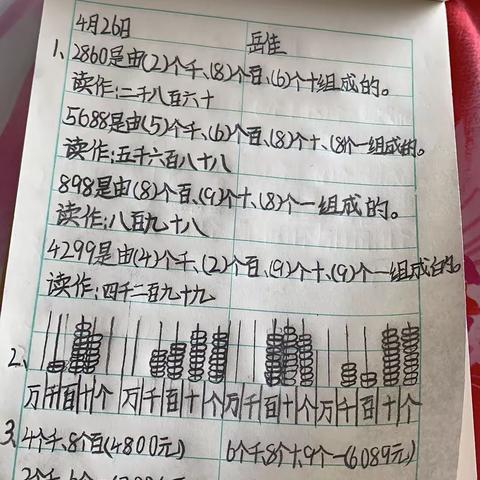 4月26日 岳佳
1、2860是由(2)个千、(8)个百、(6)个十组成的。
读作:二千八百六十
5688是由(5)个千、(6)个百、(8)个十、(8)个一组成的。
读作:五千六百八十八
898是由(8)个百、(9)个十、(8)个一组成的。
读作:八百九十八
4299是由(4)个千、(2)个百、(9)个十、(9)个一组成的。
读作:四千二百九十九
2、
万千百十个 万千百十个 万千百十个 万千百十个
3、4个千、8个百(4800元) 6个千、8个十、9个一(6089元)